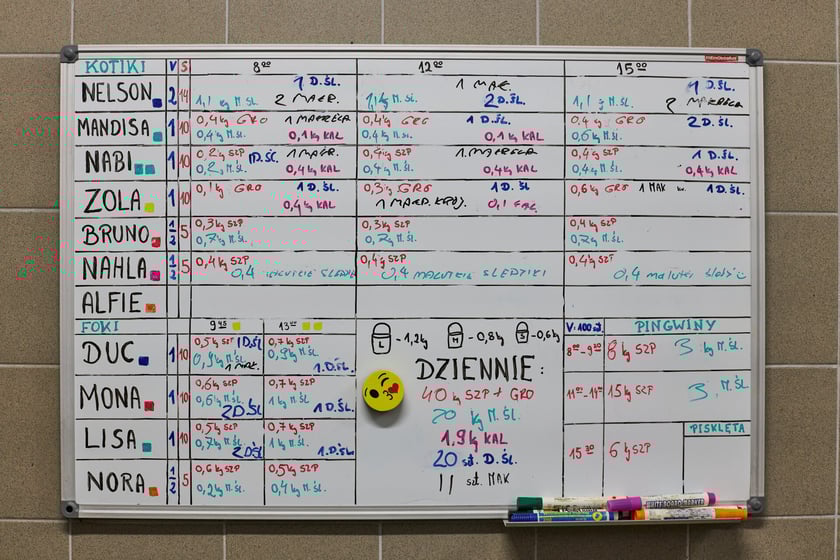 KOTIKI V S 8⁰⁰ 12⁰⁰ 15⁰⁰
NELSON 2 14 1 D.ŚL. 1 MAK. 1 D.ŚL.
1,1 kg M.ŚL. 2 MAKR. 1,1 kg M.ŚL. 2 D.ŚL. 1,1 kg M.ŚL. 2 MAKRELA
MANDISA 1 10 0,4 kg GRO 1 MAKRELA 0,4 kg GRO 1 D.ŚL. 0,4 kg GRO 2 D.ŚL.
0,4 kg M.ŚL. 0,1 kg KAL 0,4 kg M.ŚL. 0,1 kg KAL 0,6 kg M.ŚL.
NABI 1 10 0,2 kg SZP 1D.ŚĆ. 1 MAKR. 0,4 kg SZP 1.MAKRELA 0,4 kg SZP 1 D.ŚL.
0,2 kg M.ŚL. 0,4 kg KAL 0,4 kg M.ŚL. 0,4 kg KAL 0,4 kg M.ŚL. 0,4 kg KAL
ZOLA 1 10 0,1 kg GRO 1 D.ŚL. 0,3 kg GRO 1 D.ŚL 0,6 kg GRO 1 MAK 1 D.ŚL
0,4 kg KAL 1 MAKR. KROJ. 0,1
BRUNO 1/2 5 0,3 kg SZP 0,3 kg SZP 0,4 kg SZP
0,7 kg M.ŚL. 0,7 kg M.ŚL. 0,7 kg M.ŚL.
NAHLA 1/2 5 0,4 kg SZP 0,4 kg SZP 0,4 kg SZP
0,4 0,4 MALUTKIE ŚLEDZIKI 0,4
ALFIE
FOKI 9⁴⁵ 13⁰⁰ L - 1,2kg M - 0,8kg S - 0,6kg V-100 szt. PINGWINY
DUC 1 10 0,5 kg SZP 1D.ŚL 0,7 kg SZP 8⁰⁰-9⁰⁰ 8 kg SZP 3 kg M.ŚL
0,9 kg M.ŚL 1 MAK. 0,9 kg M.ŚL. 1.D.ŚL.
DZIENNIE:
MONA 1 10 0,6 kg SZP 0,7 kg SZP 40 kg SZP + GRO 15 kg SZP 3 M.ŚL.
0,6 kg M.ŚL 2D.ŚL 1 kg M.ŚL. 1 D.ŚL. 20 kg M.ŚL.
LISA 1 10 0,5 kg SZP 0,7 kg SZP 1,9 kg KAL PISKLĘTA
0,7 kg M.ŚL 2 D.ŚL 1 kg M.ŚL 1.D.ŚL 20 szt. D.ŚL. 15³⁰ 6 kg SZP
NORA 1/2 5 0,6 kg SZP 0,5 kg SZP 11 szt. MAK
0,2 kg M.ŚL. 0,4 kg M.ŚL.
WHITE BOARD MARKER